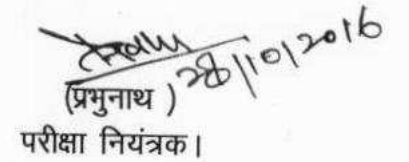 28/10/2016
(प्रभुनाथ )
परीक्षा नियंत्रक।